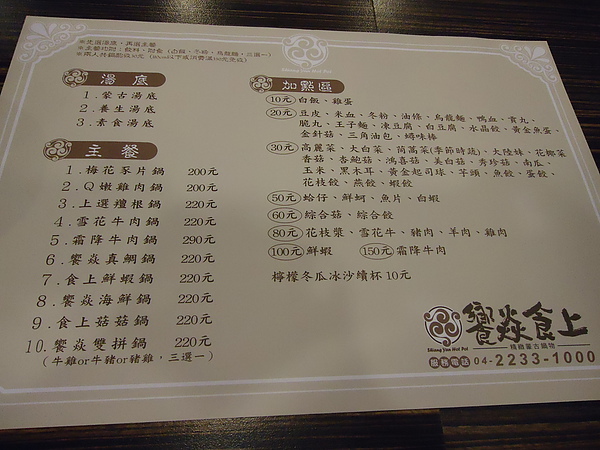 ※先選湯底，再選主餐
※主餐均附：飲料、附食（白飯、冬粉、烏龍麵，三選一）
湯底
1.蒙古湯底
2.養生湯底
3.素食湯底
主餐
1.梅花豕片鍋 200元
2.Q嫩雞肉鍋 200元
3.上選羶根鍋 220元
4.雪花牛肉鍋 220元
5.霜降牛肉鍋 290元
6.饗焱真鯛鍋 220元
7.食上鮮蝦鍋 220元
8.饗焱海鮮鍋 220元
9.食上菇菇鍋 220元
10.饗焱雙拼鍋 220元
（牛雞or牛豬or豬雞，三選一）
加點區
10元 白飯、雞蛋
20元 豆皮、米血、冬粉、油條、烏龍麵、鴨血、貢丸、
脆丸、王子麵、凍豆腐、白豆腐、水晶餃、黃金魚蛋、
金針菇、三角油包、蟳味棒
30元 高麗菜、大白菜、茼萵菜(季節時蔬)、大陸妹、花椰菜
香菇、杏鮑菇、鴻喜菇、美白菇、秀珍菇、南瓜、
玉米、黑木耳、黃金起司球、芋頭、魚餃、蛋餃、
花枝餃、燕餃、蝦餃
50元 蛤仔、鮮蚵、魚片、白蝦
60元 綜合菇、綜合餃
80元 花枝漿、雪花牛、豬肉、羊肉、雞肉
100元 鮮蝦 150元 霜降牛肉
檸檬冬瓜冰沙續杯 10元
饗焱食上
精緻蒙古鍋物
Shiang Yan Hot Pot
服務電話 04-2233-1000